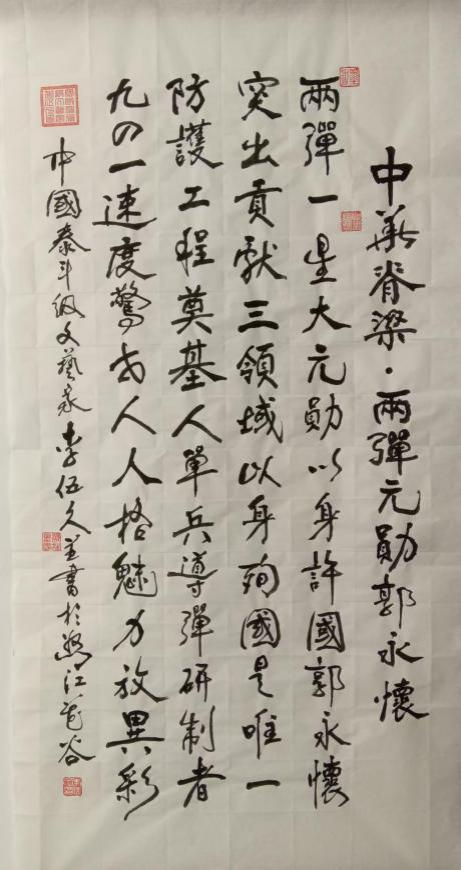 中華脊梁·兩彈元勛郭永懷
兩彈一星大元勛以身許國郭永懷
突出貢獻三領域以身殉國是唯一
防護工程奠基人單兵導彈研制者
九〇一速度驚世人人格魅力放異彩
中國泰斗级文藝家李伍久並書於濱江龍谷